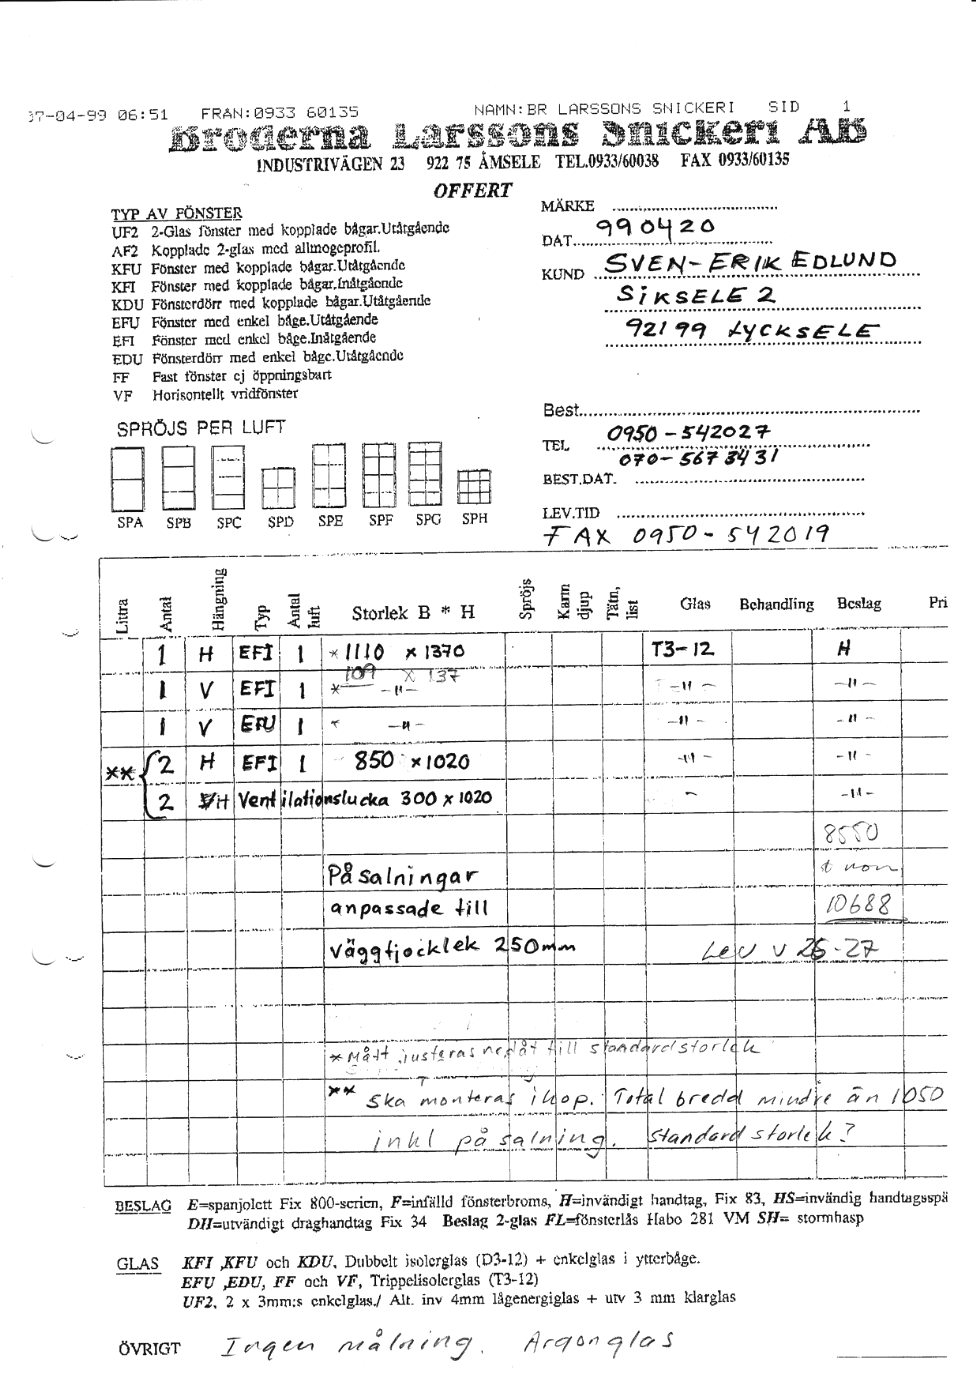 07-04-99 06:51 FRAN:0933 60135 NAMN:BR LARSSONS SNICKERI SID 1
Bröderna Larssons Snickeri AB
INDUSTRIVÄGEN 23 922 75 ÅMSELE TEL.0933/60038 FAX 0933/60135
OFFERT
TYP AV FÖNSTER
UF2 2-Glas fönster med kopplade bågar.Utåtgående
AF2 Kopplade 2-glas med allmogeprofil.
KFU Fönster med kopplade bågar.Utåtgående
KFI Fönster med kopplade bågar.Inåtgående
KDU Fönsterdörr med kopplade bågar.Utåtgående
EFU Fönster med enkel båge.Utåtgående
EFI Fönster med enkel båge.Inåtgående
EDU Fönsterdörr med enkel båge.Utåtgående
FF Fast fönster ej öppningsbart
VF Horisontellt vridfönster
MÄRKE
DAT. 990420
KUND SVEN-ERIK EDLUND
SIKSELE 2
92199 LYCKSELE
Best.
TEL 0950-542027
070-5673431
BEST.DAT.
LEV.TID
FAX 0950-542019
SPRÖJS PER LUFT
SPA SPB SPC SPD SPE SPF SPG SPH
Littra Antal Hängning Typ Antal luft Storlek B * H Spröjs Karm djup Tätn, list Glas Behandling Beslag Pri
1 H EFI 1 *1110 x 1370 T3-12 H
109 X 137
1 V EFI 1 * -"- -"- -"-
1 V EFU 1 * -"- -"- -"-
** 2 H EFI 1 850 x 1020 -"- -"-
2 VH Ventilationslucka 300 x 1020 - -"-
8550
Påsalningar t mom
anpassade till 10688
Väggtjocklek 250mm Lev v 26-27
*Mått justeras nedåt till standardstorlek
** Ska monteras ihop. Total bredd mindre än 1050
inkl påsalning. Standardstorlek?
BESLAG E=spanjolett Fix 800-serien, F=infälld fönsterbroms, H=invändigt handtag, Fix 83, HS=invändig handtagsspä
DH=utvändigt draghandtag Fix 34 Beslag 2-glas FL=fönsterlås Habo 281 VM SH= stormhasp
GLAS KFI ,KFU och KDU, Dubbelt isolerglas (D3-12) + enkelglas i ytterbåge.
EFU ,EDU, FF och VF, Trippelisolerglas (T3-12)
UF2, 2 x 3mm:s enkelglas./ Alt. inv 4mm lågenergiglas + utv 3 mm klarglas
ÖVRIGT Ingen målning. Argonglas